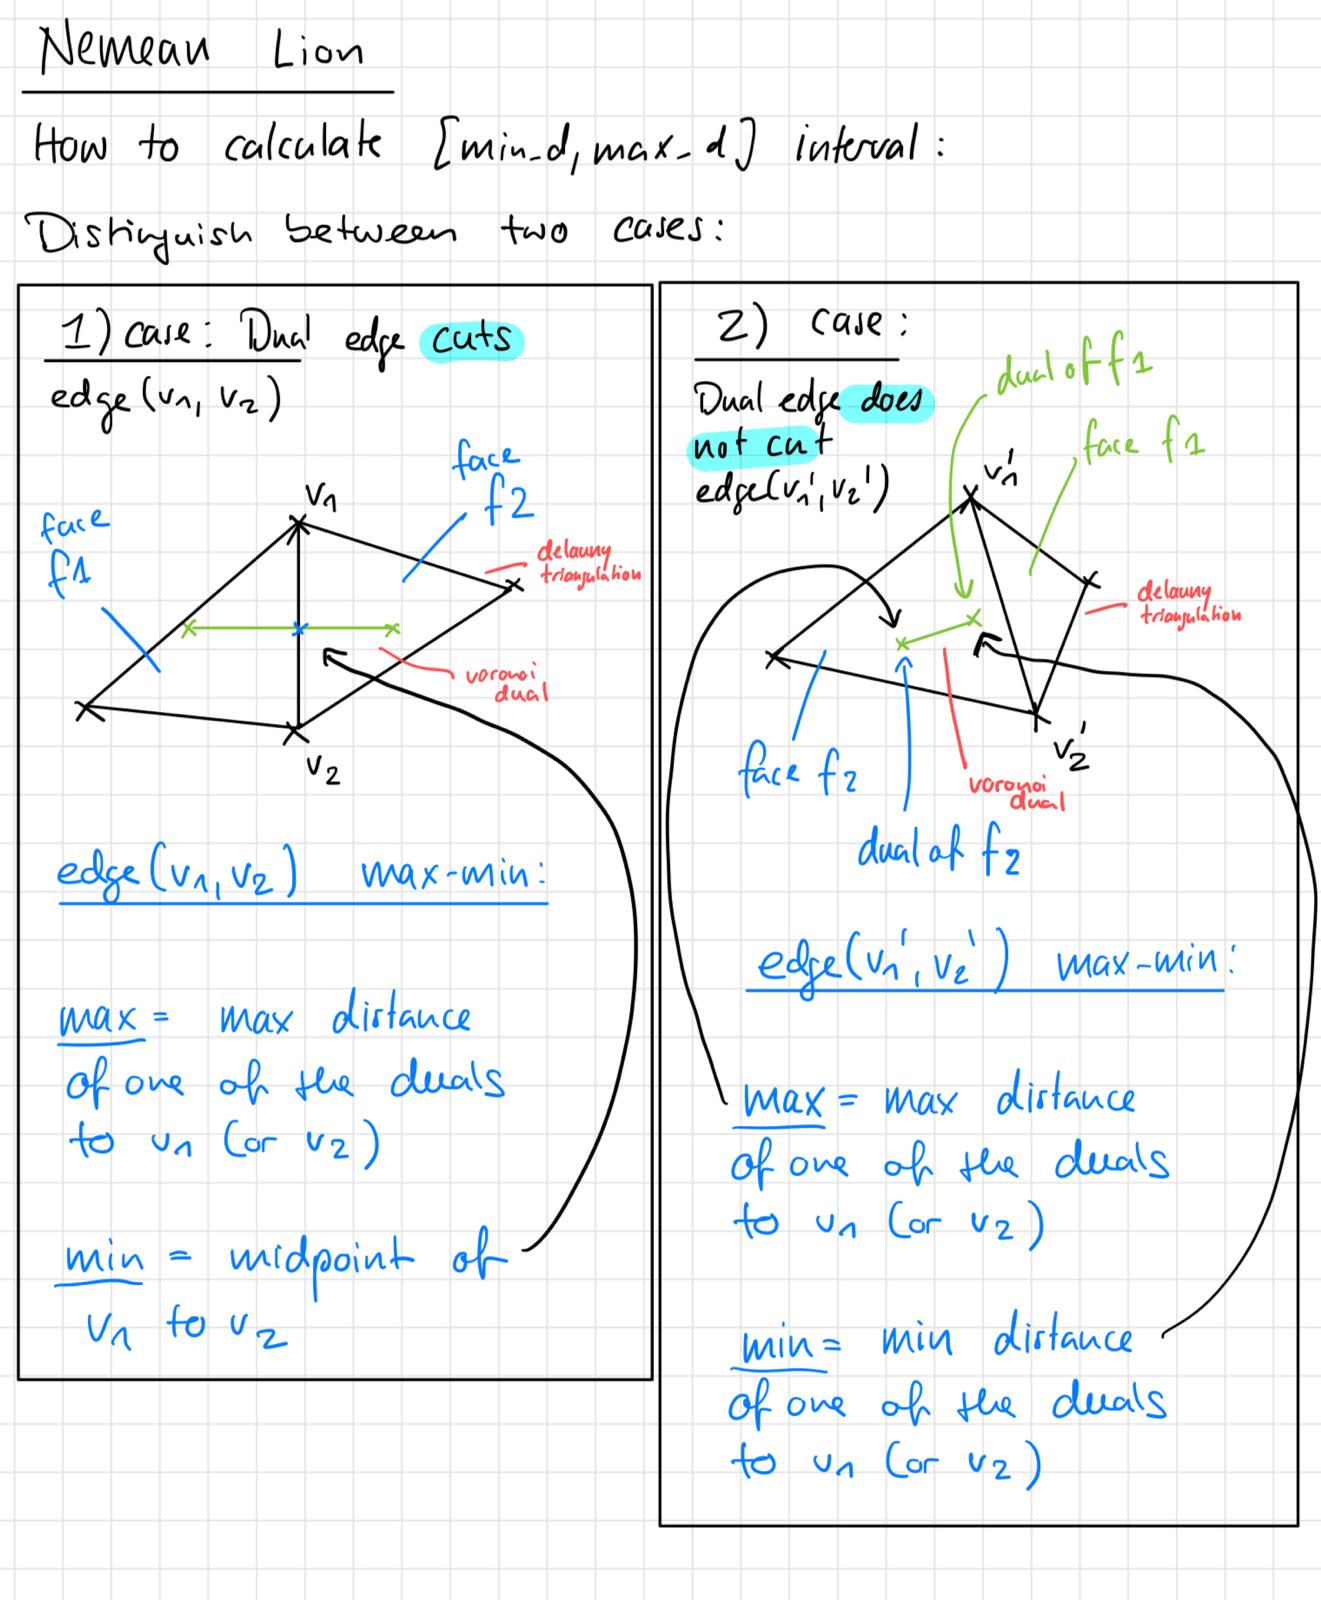 Nemean Lion
How to calculate [min_d, max_d] interval:
Distinguish between two cases:
1) case: Dual edge cuts
edge(v1, v2)
face
f1
v1
face
f2
delauny
triangulation
voronoi
dual
v2
edge(v1, v2) max-min:
max = max distance
of one of the duals
to v1 (or v2)
min = midpoint of
v1 to v2
2) case:
Dual edge does
not cut
edge(v1', v2')
dual of f1
face f1
v1'
delauny
triangulation
face f2
v2'
voronoi
dual
dual of f2
edge(v1', v2') max-min:
max = max distance
of one of the duals
to v1 (or v2)
min = min distance
of one of the duals
to v1 (or v2)